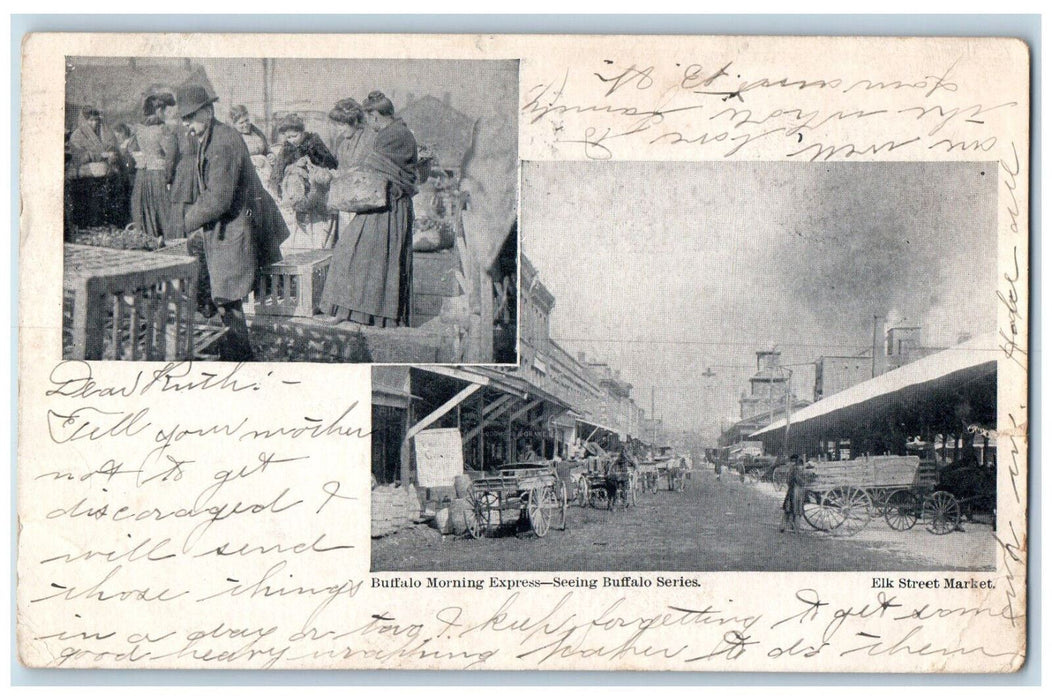 Dear Ruth: -
Tell your mother
not to get
discoraged I
will send
those things
in a day or two, I keep forgetting to get some
good heavy wrapping paper to do them
up in. Hope all
are well
the whole family
Love to
Buffalo Morning Express—Seeing Buffalo Series.
Elk Street Market.